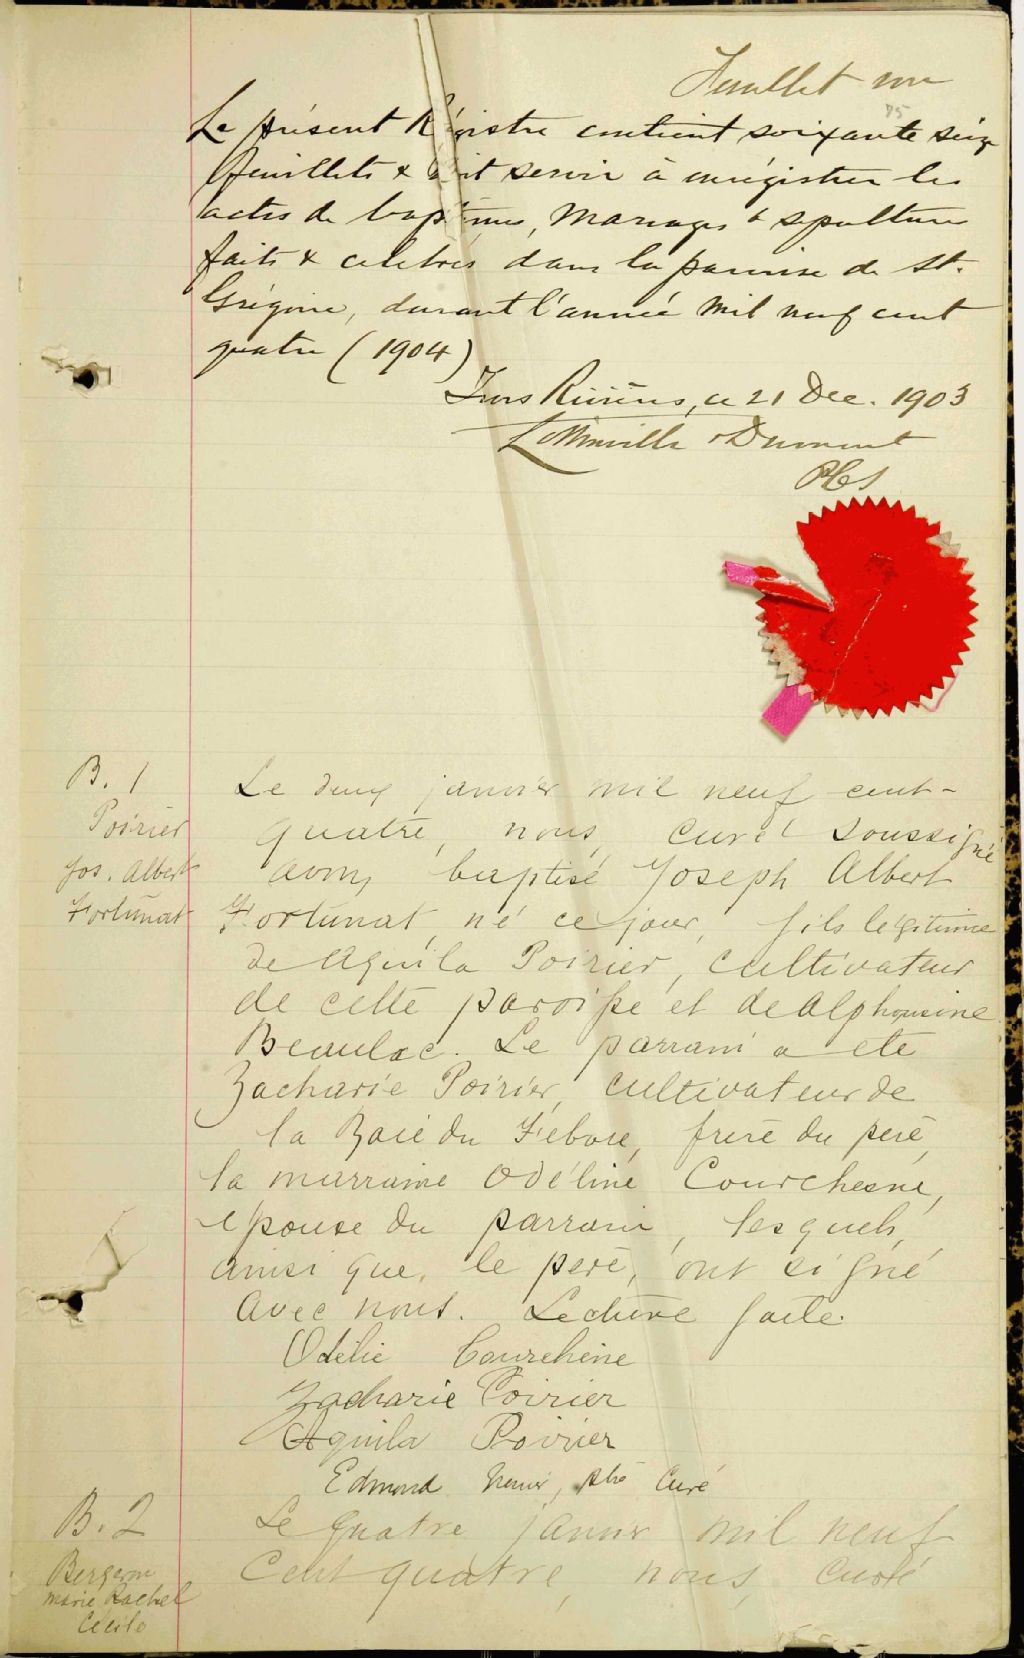 Feuillet un
75
Le présent Régistre contient soixante seize
feuillets & doit servir à enrégistrer les
actes de baptêmes, Mariages & sepultures
faits & célébrés dans la paroisse de St.
Grégoire, durant l'année mil neuf cent
quatre (1904)
Trois Rivières, ce 21 Dec. 1903
Dumont
PCS
B. 1
Poirier
Jos. Albert
Fortunat
Le deux janvier mil neuf cent-
quatre, nous, curé soussigné
avons baptisé Joseph Albert
Fortunat, né ce jour, fils légitime
de Aquila Poirier, cultivateur
de cette paroisse et de Alphonsine
Beaulac. Le parrain a ete
Zacharie Poirier, cultivateur de
la Baie du Febvre, frère du père,
la marraine Odéline Courchesne,
epouse du parrain, lesquels,
ainsi que le père, ont signé
avec nous. Lecture faite.
Odélie Courchéne
Zacharie Poirier
Aquila Poirier
Edmond Ptre Curé
B. 2
Bergeron
Marie Rachel
Cécile
Le quatre janvier mil neuf
cent quatre, nous, curé